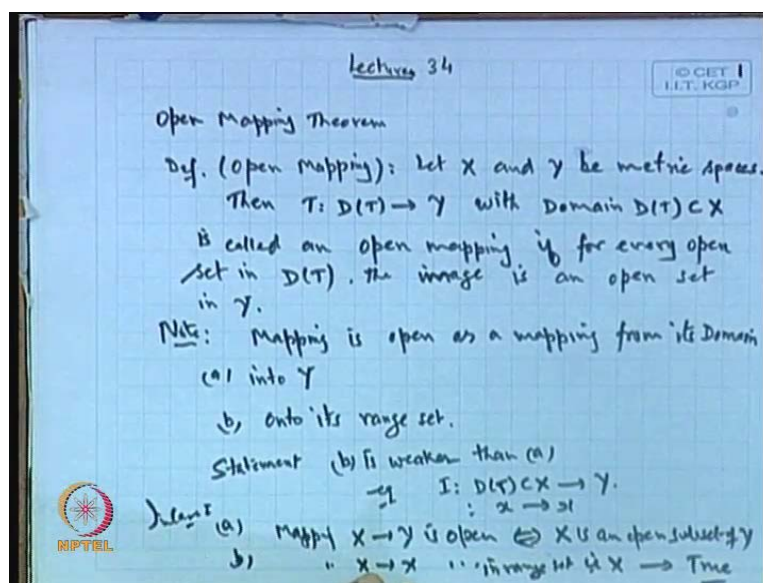 Lectures 34
© CET
I.I.T. KGP
1
Open Mapping Theorem
Def. (Open Mapping): Let X and Y be metric spaces.
Then T: D(T) → Y with Domain D(T) ⊂ X
is called an open mapping if for every open
set in D(T), the image is an open set
in Y.
Note: Mapping is open as a mapping from its Domain
(a) into Y
b, onto its range set.
Statement (b) is weaker than (a)
eg I: D(T) ⊂ X → Y.
: x → x
(a) Mapping X → Y is open ⇔ X is an open subset of Y
b) " X → X " " in range set is X → True
NPTEL